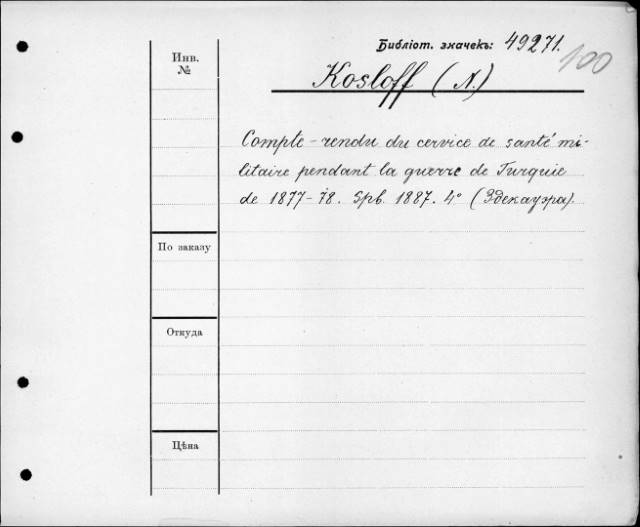 Библіот. значекъ: 49271.
100
Инв.
№
Kosloff (N.)
Compte-rendu du cervice de santé mi-
litaire pendant la guerre de Turquie
de 1877-78. Spb. 1887. 4° (Здекауэра).
По заказу
Откуда
Цѣна